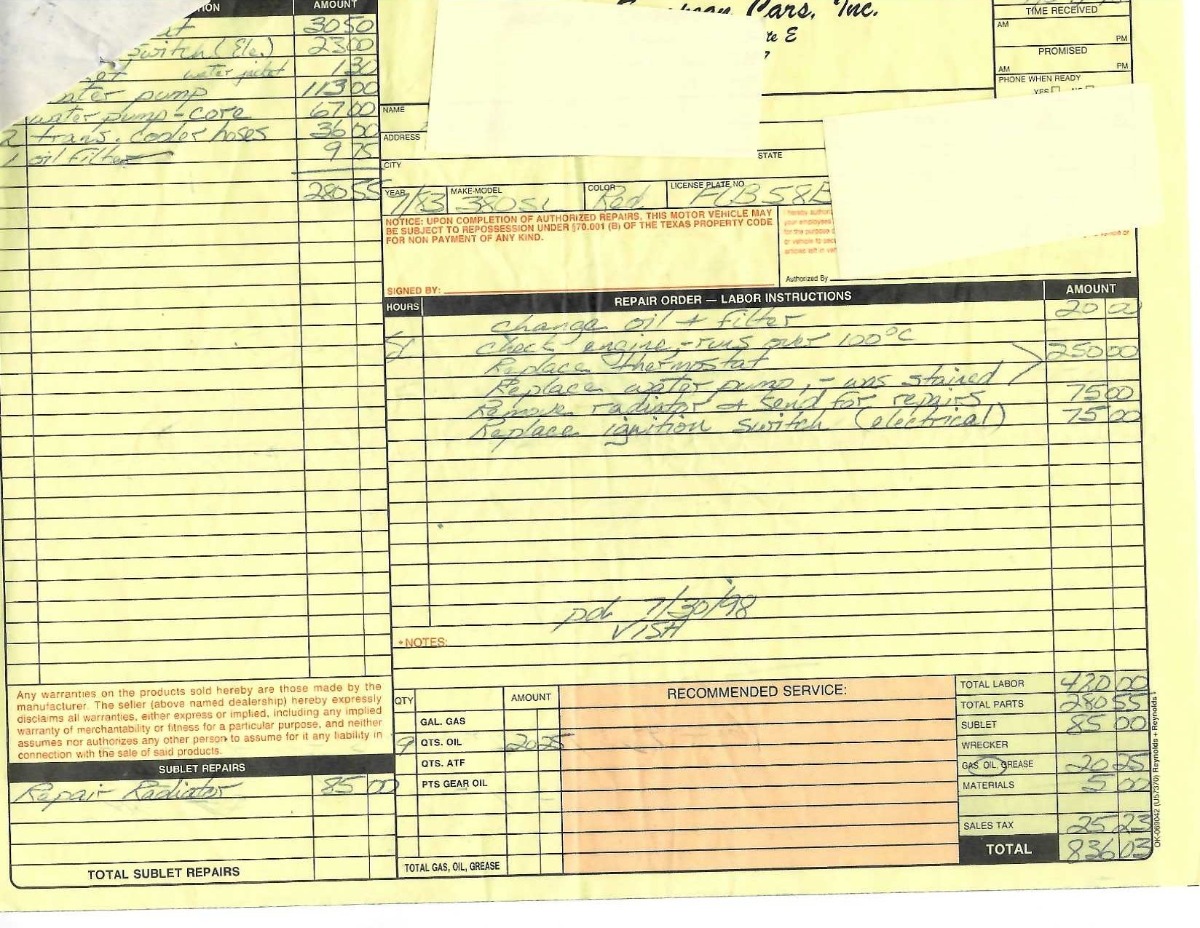 AMOUNT
30 50
Switch (Ele.) 23 00
water jacket 1 30
water pump 113 00
water pump - core 67 00
2 trans. cooler hoses 36 00
1 oil filter 9 75
280 55
Cars, Inc.
E
TIME RECEIVED
AM PM
PROMISED
AM PM
PHONE WHEN READY
NAME
ADDRESS
CITY STATE
YEAR MAKE-MODEL COLOR LICENSE PLATE NO.
7/83 380SL Red
NOTICE: UPON COMPLETION OF AUTHORIZED REPAIRS, THIS MOTOR VEHICLE MAY
BE SUBJECT TO REPOSSESSION UNDER §70.001 (B) OF THE TEXAS PROPERTY CODE
FOR NON PAYMENT OF ANY KIND.
SIGNED BY:
I hereby
your employees
for the purpose
or vehicle to
articles left in
Authorized By
HOURS REPAIR ORDER — LABOR INSTRUCTIONS AMOUNT
Change oil + filter 20 00
Check engine, - runs over 100°C
Replace thermostat 250 00
Replace water pump, - was stained
Remove radiator + send for repairs 75 00
Replace ignition switch (electrical) 75 00
pd. 7/30/98
VISA
*NOTES:
Any warranties on the products sold hereby are those made by the
manufacturer. The seller (above named dealership) hereby expressly
disclaims all warranties, either express or implied, including any implied
warranty of merchantability or fitness for a particular purpose, and neither
assumes nor authorizes any other person to assume for it any liability in
connection with the sale of said products.
SUBLET REPAIRS
Repair Radiator 85 00
TOTAL SUBLET REPAIRS
QTY AMOUNT
GAL. GAS
9 QTS. OIL 20 25
QTS. ATF
PTS GEAR OIL
TOTAL GAS, OIL, GREASE
RECOMMENDED SERVICE:
TOTAL LABOR 420 00
TOTAL PARTS 280 55
SUBLET 85 00
WRECKER
GAS OIL GREASE 20 25
MATERIALS 5 00
SALES TAX 25 23
TOTAL 836 03
OK-069042 (U57370) Reynolds + Reynolds